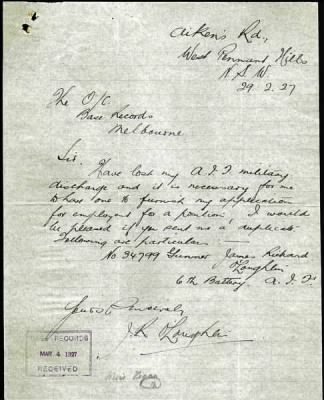 Aiken's Rd,
West Pennant Hills
N.S.W.
29.2.27
The O/C
Base Records
Melbourne
Sir,
Have lost my A.I.F military
discharge and it is necessary for me
to have one to furnish my application
for employment for a position, I would
be pleased if you sent me a duplicate
Following are particulars
No 34799 Gunner James Richard
O'Loughlin
6th Battery A.I.F.
Yours Sincerely
J.R O'Loughlin
BASE RECORDS
MAR 4 1927
RECEIVED
Miss